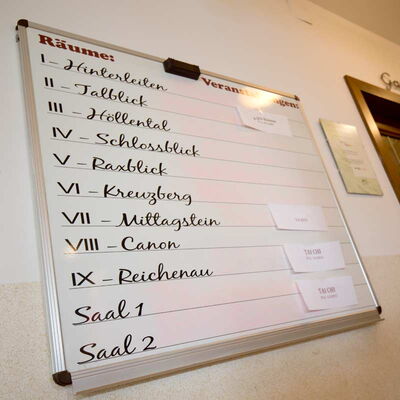 Räume: Veranstaltungen:
I – Hinterleiten
II – Talblick
III – Höllental
IV – Schlossblick
V – Raxblick
VI – Kreuzberg
VII – Mittagstein
VIII – Canon
TAI CHI
IX – Reichenau
TAI CHI
Saal 1
Saal 2